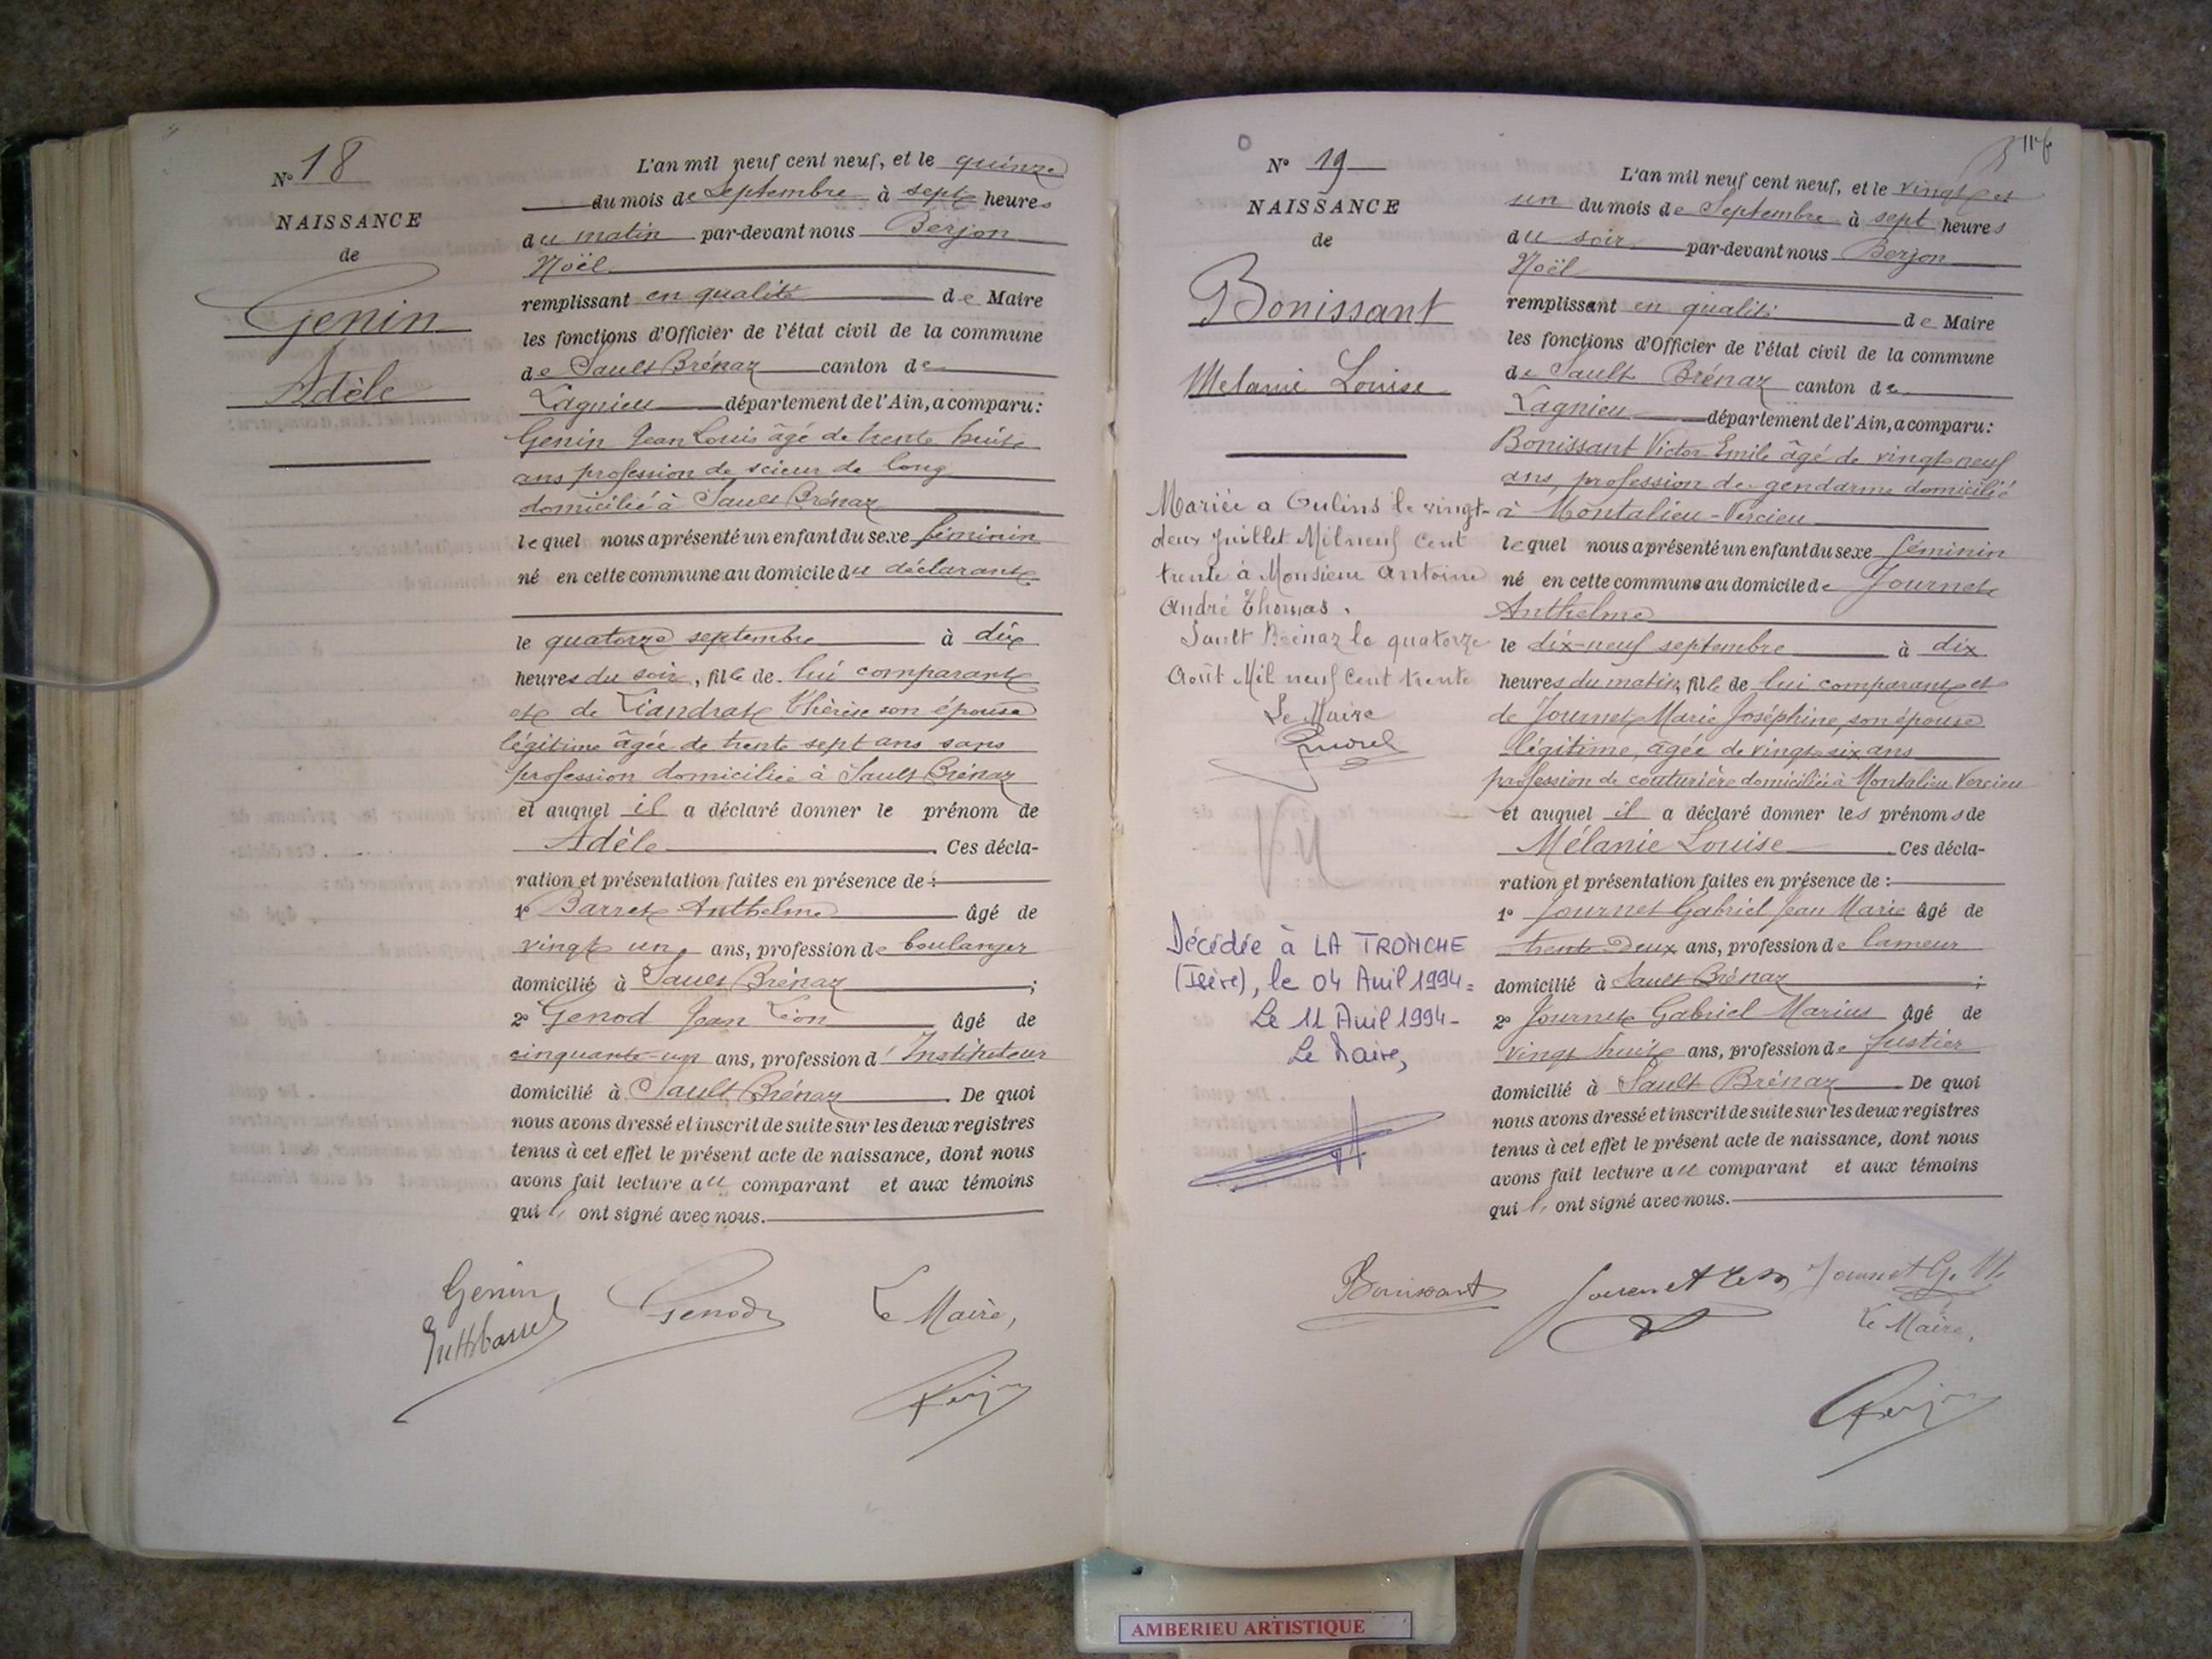 N° 18
NAISSANCE
de
Genin
Adèle
L'an mil neuf cent neuf, et le quinze
du mois de Septembre à sept heures
du matin par-devant nous Berjon
Noël
remplissant en qualité de Maire
les fonctions d'Officier de l'état civil de la commune
de Sault Brénaz canton de
Lagnieu département de l'Ain, a comparu:
Genin Jean Louis âgé de trente huit
ans profession de scieur de long
domicilié à Sault Brénaz
lequel nous a présenté un enfant du sexe féminin
né en cette commune au domicile du déclarant
le quatorze septembre à dix
heures du soir, fille de lui comparant
et de Liandrat Thérèse son épouse
légitime âgée de trente sept ans sans
profession domiciliée à Sault Brénaz
et auquel il a déclaré donner le prénom de
Adèle. Ces décla-
ration et présentation faites en présence de :
1° Barret Anthelme âgé de
vingt un ans, profession de boulanger
domicilié à Sault Brénaz ;
2° Genod Jean Léon âgé de
cinquante-un ans, profession d'Instituteur
domicilié à Sault Brénaz. De quoi
nous avons dressé et inscrit de suite sur les deux registres
tenus à cet effet le présent acte de naissance, dont nous
avons fait lecture au comparant et aux témoins
qui ont signé avec nous.
Genin
Genod
Le Maire,
N° 19
NAISSANCE
de
Bonissant
Melanie Louise
Mariée a Oulins le vingt-
deux Juillet Mil neuf Cent
trente à Monsieur Antoine
André Thomas.
Sault Brénaz le quatorze
Août Mil neuf Cent trente
Le Maire
Décédée à LA TRONCHE
(Isère), le 04 Avril 1994=
Le 11 Avril 1994-
Le Maire,
L'an mil neuf cent neuf, et le vingt et
un du mois de Septembre à sept heures
du soir par-devant nous Berjon
Noël
remplissant en qualité de Maire
les fonctions d'Officier de l'état civil de la commune
de Sault Brénaz canton de
Lagnieu département de l'Ain, a comparu:
Bonissant Victor Emile âgé de vingt neuf
ans, profession de gendarme domicilié
à Montalieu-Vercieu
lequel nous a présenté un enfant du sexe féminin
né en cette commune au domicile de Journet
Anthelme
le dix-neuf septembre à dix
heures du matin, fille de lui comparant et
de Journet Marie Joséphine, son épouse
légitime, âgée de vingt six ans
profession de couturière domiciliée à Montalieu Vercieu
et auquel il a déclaré donner les prénoms de
Mélanie Louise. Ces décla-
ration et présentation faites en présence de :
1° Journet Gabriel Jean Marie âgé de
trente deux ans, profession de lameur
domicilié à Sault Brénaz ;
2° Journet Gabriel Marius âgé de
vingt huit ans, profession de fustier
domicilié à Sault Brénaz. De quoi
nous avons dressé et inscrit de suite sur les deux registres
tenus à cet effet le présent acte de naissance, dont nous
avons fait lecture au comparant et aux témoins
qui ont signé avec nous.
Bonissant
Le Maire,
AMBERIEU ARTISTIQUE